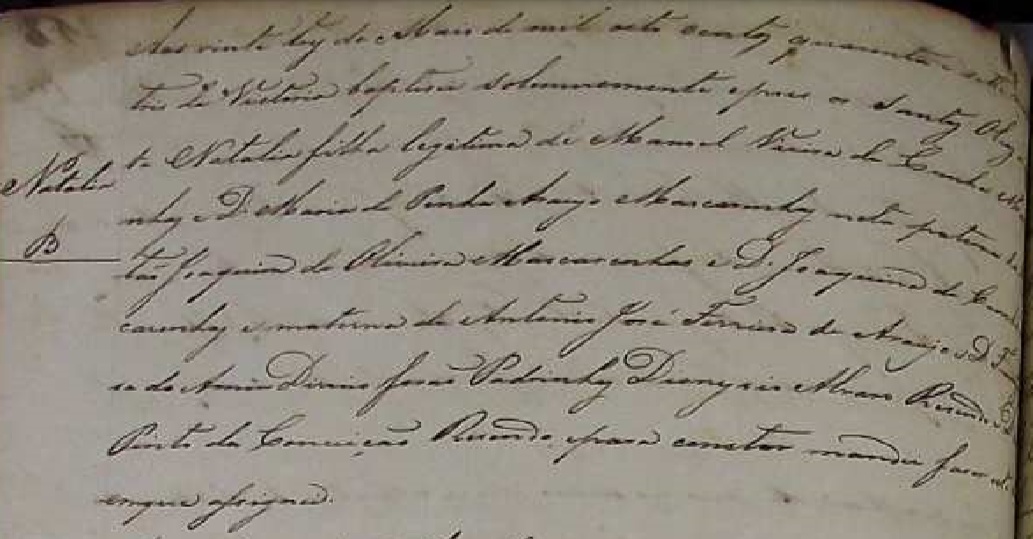 Aos vinte tres de Maio de mil oito centos quarenta e sete
triz da Victoria baptisei solemnemente e puz os Santos Oleos
Natalia
a Natalia filha legitima de Manoel Vieira da Cunha e Mas
nhas e D. Maria da Penha Araujo Mascarenhas neta paterna de
B
tão Joaquim de Oliveira Mascarenhas e D. Joaquina de
carenhas e materna de Antonio José Ferreira de Araujo e D.
sa do Amor Divino foraõ Padrinhos Dionysio Alvaro Resendo e D.
Pinto da Conceição Resendo e para constar mandei fazer este
em que assignei.